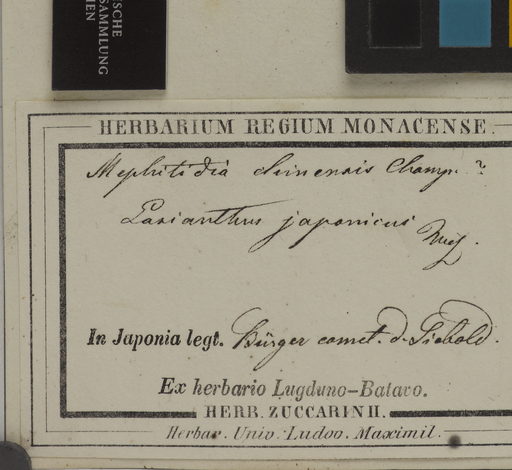 SCHE
SAMMLUNG
HEN
HERBARIUM REGIUM MONACENSE.
Mephitidia chinensis Champ. ?
Lasianthus japonicus Miq.
In Japonia legt. Bürger comt. d. Siebold.
Ex herbario Lugduno-Batavo.
HERB. ZUCCARINII.
Herbar. Univ. Ludov. Maximil.